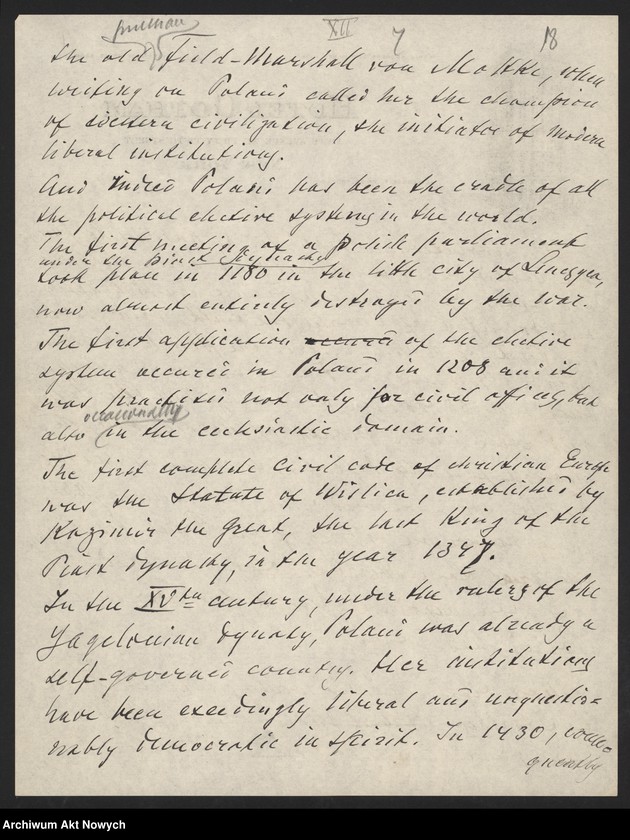 XII 7 18
prussian
the old Field-Marshall von Moltke, when
writing on Poland called her the champion
of western civilization, the initiator of modern
liberal institutions.
And indeed Poland has been the cradle of all
the political elective systems in the world.
The first meeting of a Polish parliament
under the Piast Dynasty
took place in 1180 in the little city of Lenczyca,
now almost entirely destroyed by the war.
The first application of the elective
system occured in Poland in 1208 and it
was practised not only for civil offices, but
occasionally
also in the ecclesiastic domain.
The first complete Civil code of christian Europe
was the Statute of Wislica, established by
Kazimir the Great, the last King of the
Piast dynasty, in the year 1347.
In the XVth century, under the rulers of the
Yagelonian dynasty, Poland was already a
self-governed country. Her institutions
have been exceedingly liberal and unquestio=
nably democratic in spirit. In 1430, conse=
quently
Archiwum Akt Nowych